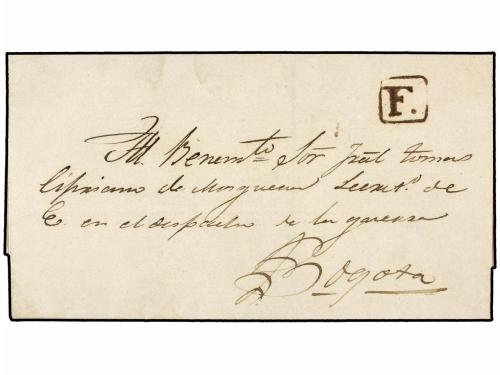 F.
Al Benemto. Sor. Jral tomas
Cipriano de Mosquera Secreto. de
E. en el despacho de la guerra
Bogota